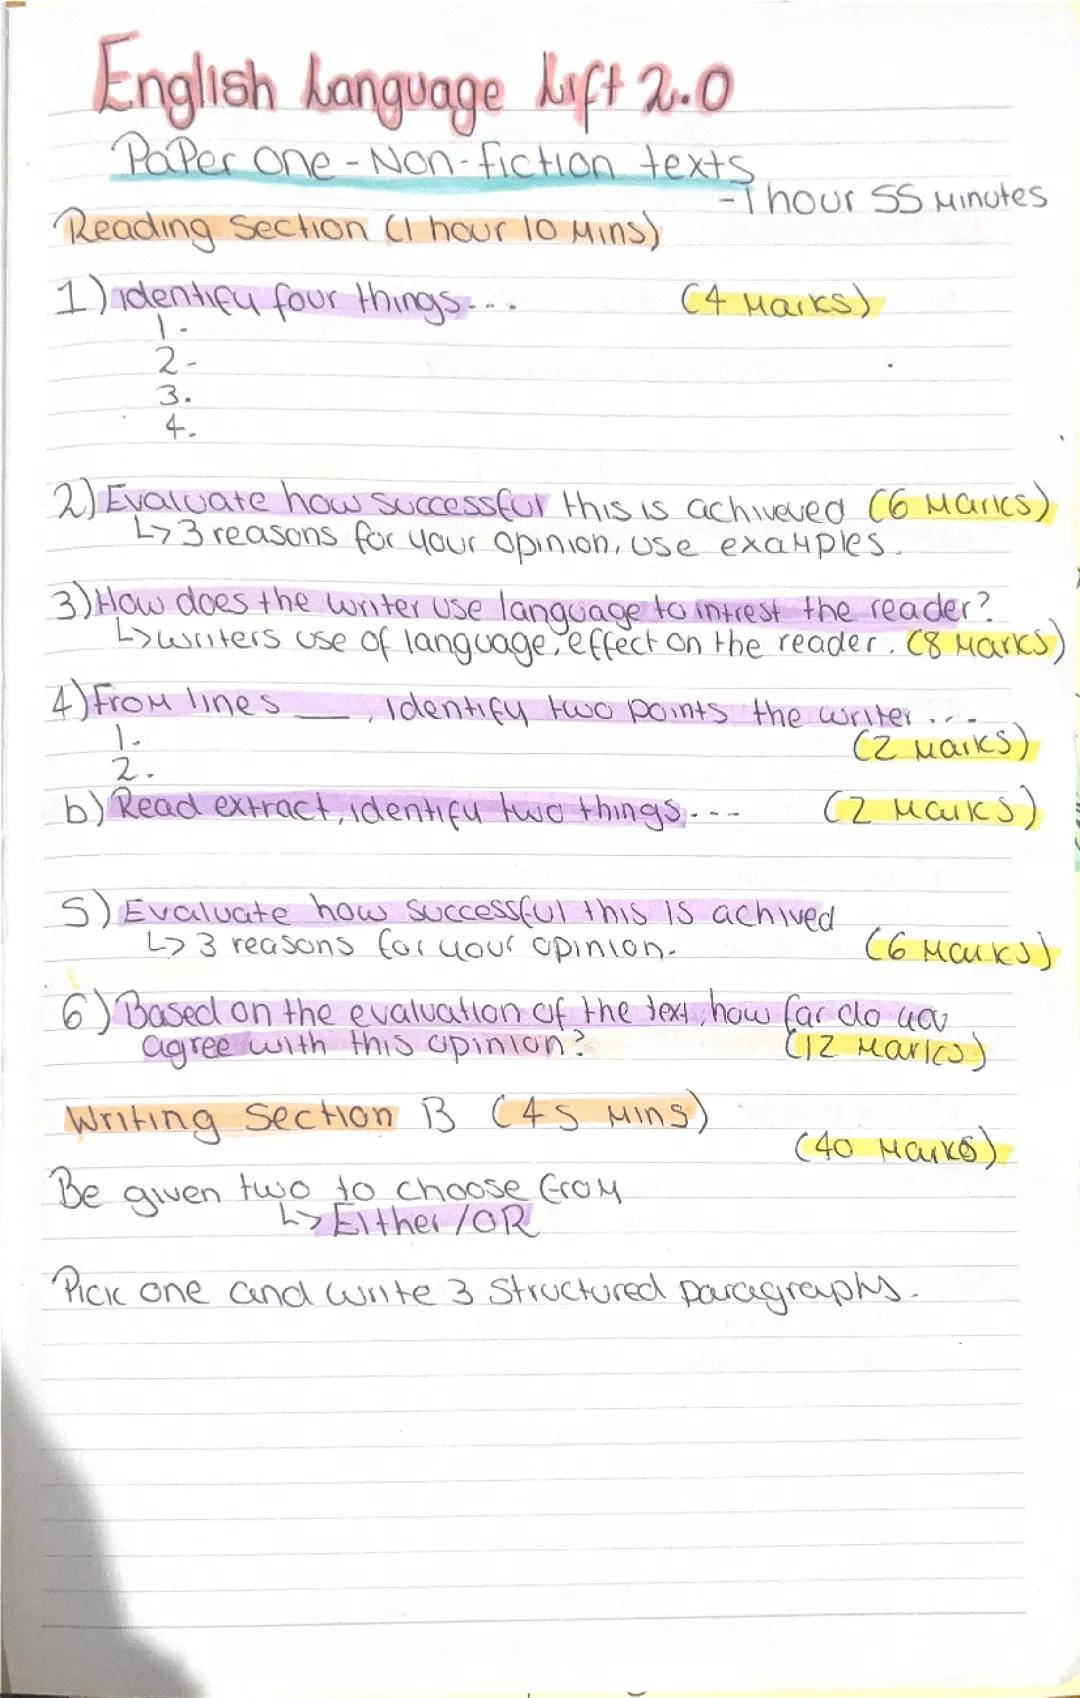 English Language Lift 2.0
Paper One - Non-fiction texts
- 1 hour 55 Minutes
Reading Section (1 hour 10 Mins)
1) identify four things... (4 Marks)
1-
2-
3.
4.
2) Evaluate how successful this is achiveved (6 Marks)
↳ 3 reasons for your opinion, use examples.
3) How does the writer use language to intrest the reader?
↳ writers use of language, effect on the reader. (8 Marks)
4) From lines __, identify two points the writer ...
1. (2 Marks)
2.
b) Read extract, identify two things.--- (2 Marks)
5) Evaluate how successful this is achived
↳ 3 reasons for your opinion. (6 Marks)
6) Based on the evaluation of the text, how far do you
agree with this opinion? (12 Marks)
Writing Section B (45 Mins)
(40 Marks)
Be given two to choose from
↳ Either / OR
Pick one and write 3 Structured paragraphs.